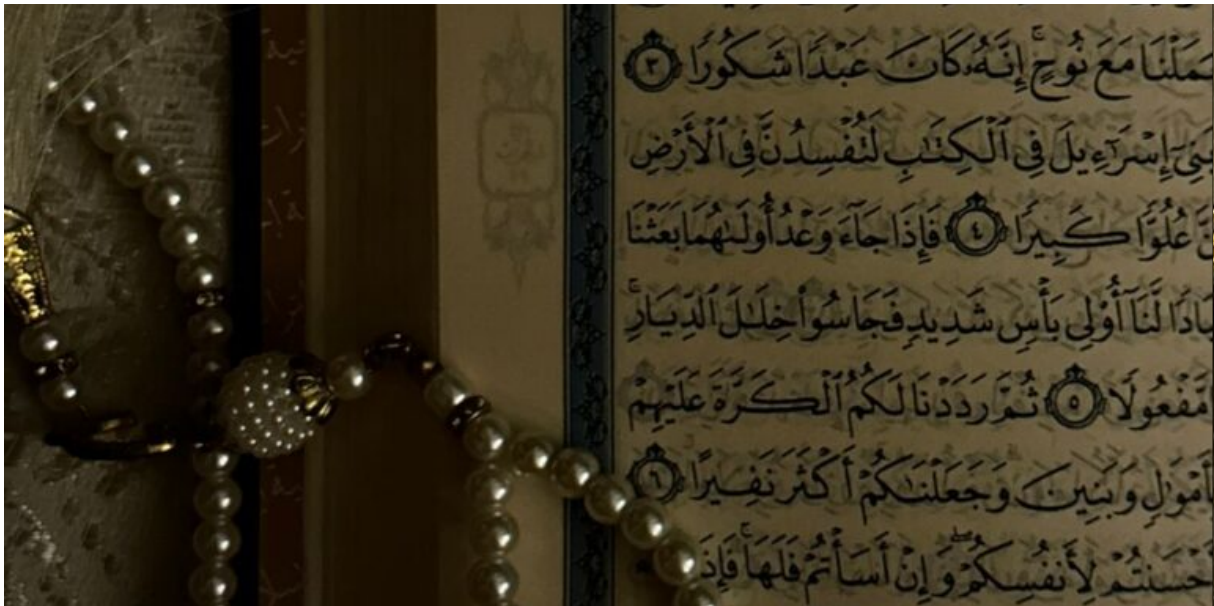 حَمَلْنَا مَعَ نُوحٍ ۚ إِنَّهُۥ كَانَ عَبْدًا شَكُورًا ٣
بَنِىٓ إِسْرَٰٓءِيلَ فِى ٱلْكِتَٰبِ لَتُفْسِدُنَّ فِى ٱلْأَرْضِ
عُلُوًّا كَبِيرًا ٤ فَإِذَا جَآءَ وَعْدُ أُولَىٰهُمَا بَعَثْنَا
عِبَادًا لَّنَآ أُو۟لِى بَأْسٍ شَدِيدٍ فَجَاسُوا۟ خِلَٰلَ ٱلدِّيَارِ ۚ
مَّفْعُولًا ٥ ثُمَّ رَدَدْنَا لَكُمُ ٱلْكَرَّةَ عَلَيْهِمْ
بِأَمْوَٰلٍ وَبَنِينَ وَجَعَلْنَٰكُمْ أَكْثَرَ نَفِيرًا ٦
أَحْسَنتُمْ لِأَنفُسِكُمْ ۖ وَإِنْ أَسَأْتُمْ فَلَهَا ۚ فَإِذَا